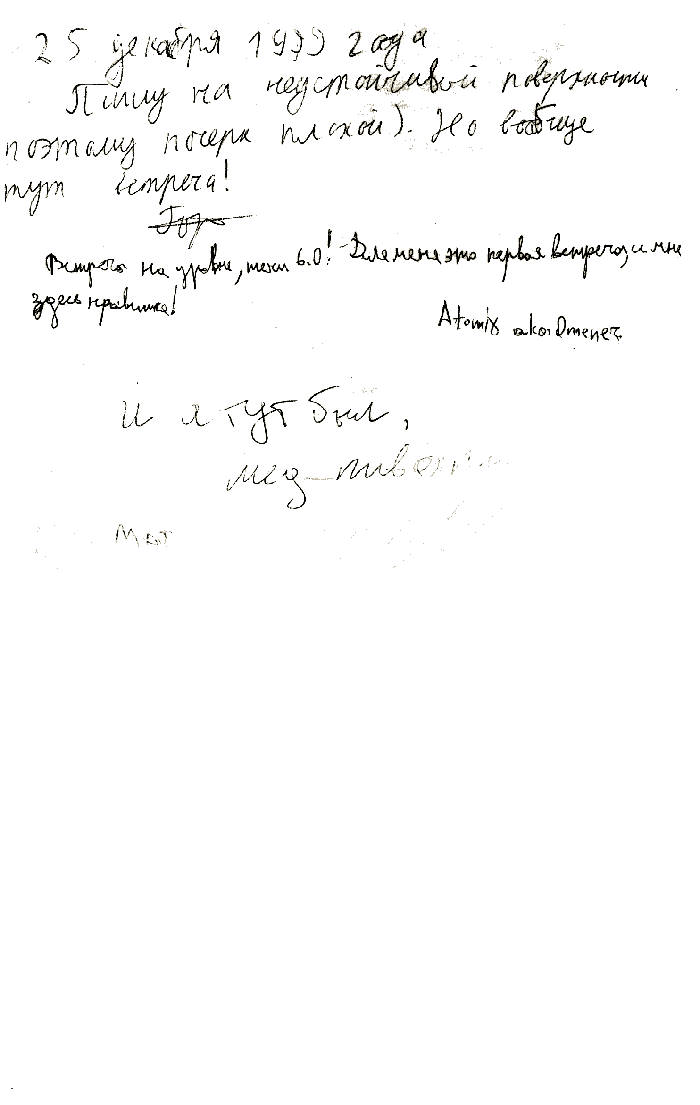 25 декабря 1979 года
Пишу на неустойчивой поверхности
поэтому почерк плохой). Но вообще
тут встреча!
Встреча на уровне, 6.0! Для меня это первая встреча, и мне
здесь нравится!
Atomix aka Omenez
И я тут был,
мед-пиво